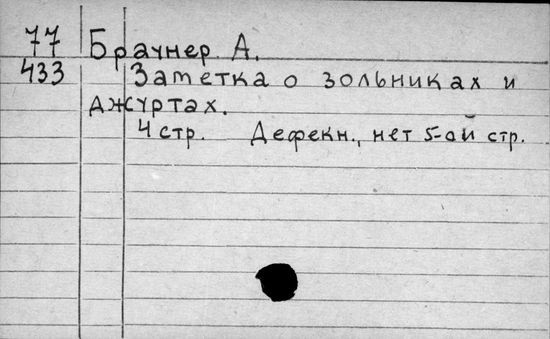 77 Браунер А.
433 Заметка о зольниках и
джуртах.
4 стр. Дефекн., нет 5-ой стр.